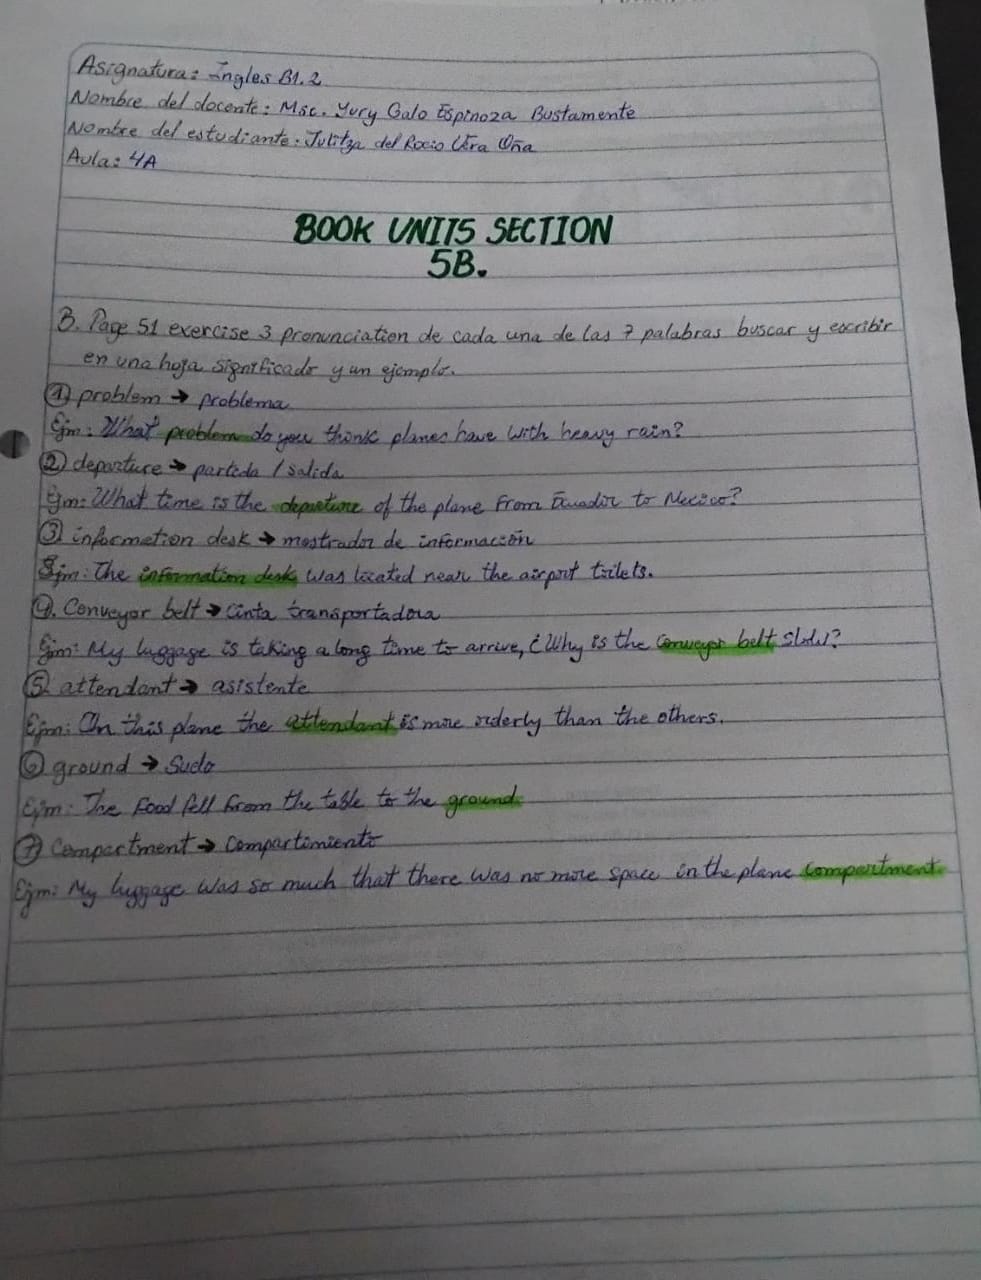 Asignatura: Ingles B1.2
Nombre del docente: Msc. Yury Galo Espinoza Bustamente
Nombre del estudiante: Julitza del Rocio Vera Oña
Aula: 4A
BOOK UNITS SECTION
5B.
3. Page 51 exercise 3 pronunciation de cada una de las 7 palabras buscar y escribir
en una hoja significado y un ejemplo.
① problem → problema
Ejm: What problem do you think planes have with heavy rain?
② departure → partida / salida
Ejm: What time is the departure of the plane from Ecuador to Mexico?
③ information desk → mostrador de información
Ejm: The information desk was located near the airport toilets.
④. Conveyor belt → Cinta transportadora
Ejm: My luggage is taking a long time to arrive, ¿Why is the conveyor belt slow?
⑤ attendant → asistente
Ejm: On this plane the attendant is more orderly than the others.
⑥ ground → Suelo
Ejm: The food fell from the table to the ground.
⑦ Compartment → Compartimiento
Ejm: My luggage was so much that there was no more space in the plane compartment.